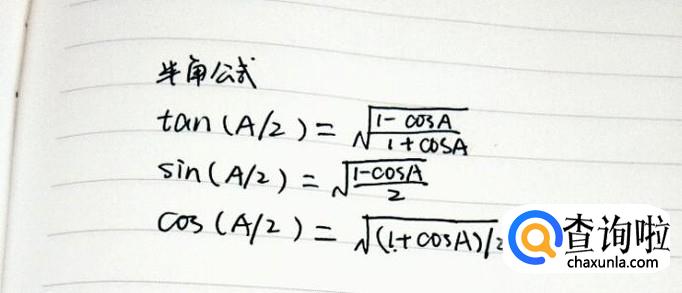 半角公式
tan(A/2)=√((1-cosA)/(1+cosA))
sin(A/2)=√((1-cosA)/2)
cos(A/2)=√((1+cosA)/2
查询啦
chaxunla.com